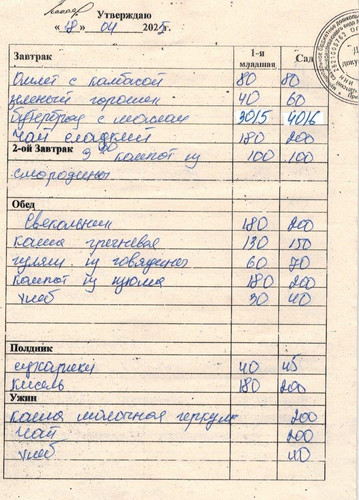 Утверждаю
«18» 04 2025г
Завтрак 1-я младшая Сад
Омлет с колбасой 80 80
зеленый горошек 40 60
Бутерброд с маслом 3015 4016
Чай сладкий 180 200
2-ой Завтрак 9 00 компот из 100 100
смородины
Обед
Свекольник 180 200
каша гречневая 130 150
гуляш из говядины 60 70
компот из изюма 180 200
хлеб 30 40
Полдник
сухарики 40 45
кисель 180 200
Ужин
каша молочная геркулес 200
чай 200
хлеб 40